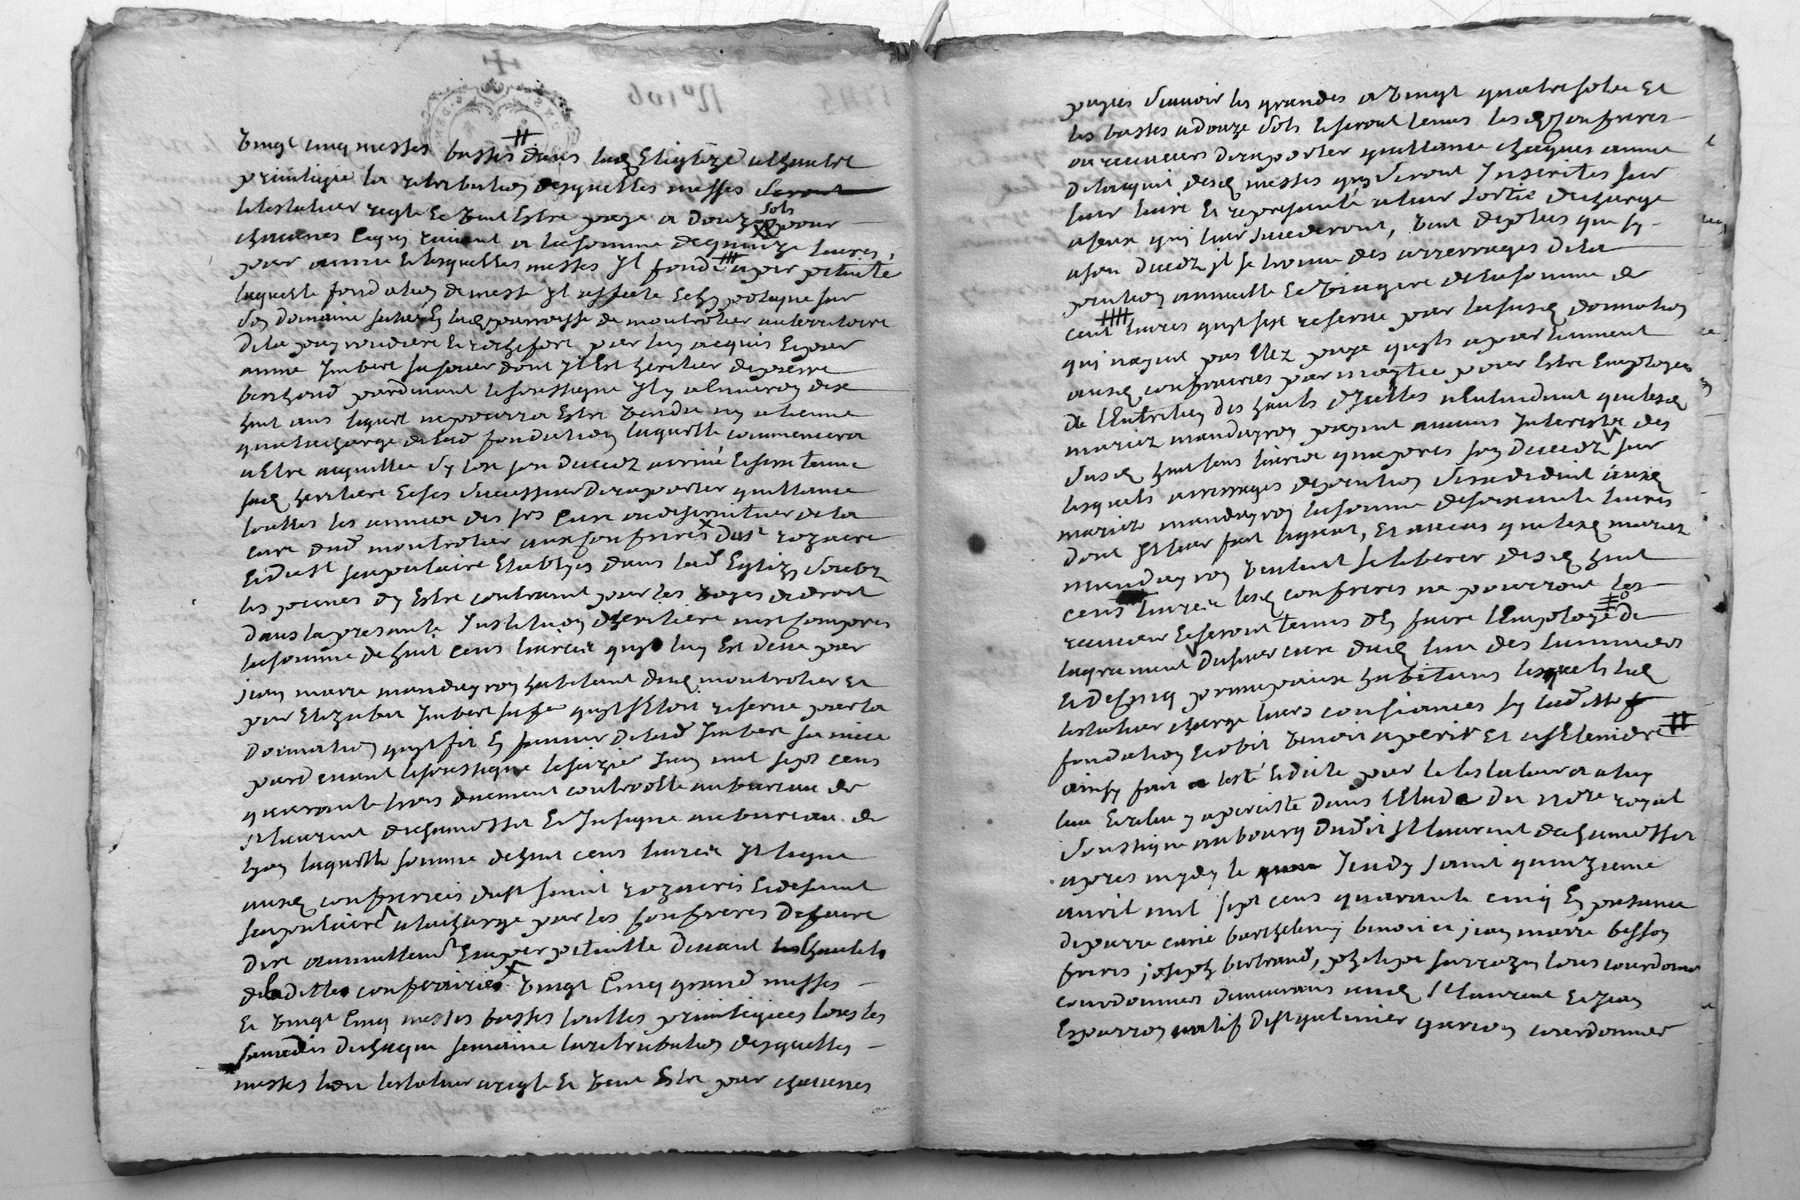 N° 106
vingt cinq messes basses dans lad Eglize a lhautel
privilegié la retribution desquelles messes seront
le testateur regle Et veut Estre payé a douze sols pour
chacunes Ce qui revient a la somme de quinze livres,
par année lesquelles messes Il fonde a perpetuité
laquelle fondation de messe Il affecte Et hypoteque sur
son domaine situez En lad parroisse de montrotier au territoire
de la Et rochefort par luy acquis Et par
anne Imbert sa sœur dont Il Est heritier de pierre
bertrand pardevant le soussigné Il y a Environ dix
huit ans lequel ne pourra Estre vendu ny aliené
qua la charge de lad fondation laquelle commencera
a Estre acquittée sy tost son deced arrivé Et sera tenue
sad heritiere Et ses successeurs de raporter quittance
touttes les années des srs Curé ou desservittuer de la
cure dud montrotier aux Confreres du st rozaire
Et du st scapulaire Etablyes dans lad Eglize soubz
les peines dy Estre contraint par les voyes de droit
dans la presente Institution dheritiere nest Compris
la somme de huit cens livres quy luy Est deue par
jean marie mandeyron habitant dud montrotier Et
par Elizabet Imbert sa fe quy sEtoit reservé par la
donnation quyl fit En faveur de lad Imbert sa niece
pardevant le soussigné le seizie Juin mil sept cens
quarante trois duement controollé au bureau de
st laurent de chamosset Et Insinué au bureau de
lyon laquelle somme de huit cens livres Il legue
auxd confreries du st saint rozaire Et de saint
scapulaire a la charge par les Confreres de faire
dire annuellemt Et a perpetuitté devant les hautels
de laditte confrairie vingt Cinq grand messes
Et vingt Cinq messes basses touttes privilegiées tous les
samedis de chaque semaine la retribution desquelles
messes led testateur a reglé Et veut Estre par chacunes
payés scavoir les grandes a vingt quatre sols Et
les basses a douze sols Et seront tenus lesd Confreres
ou recteurs de raporter quittance chaques année
de lacquit desd messes quy seront Inscrittes sur
leur livre Et representé a leur sortie de charge
a ceux qui leur succederont, veut de plus que sy
a son decedz Il se trouve des arrerages de la
pention annuelle Et viagere de la somme de
cent livres quyl sest reservé par la susd donnation
qui nayent pas Etez payé quyls apartiennent
auxd confrairies par moytié pour Estre Employes
de lEntretien des hautels dIcelles nEntendant que lesd
mariez mandeyron payent aucuns Interests des
susd huit cens livres quapres son decedz sur
lesquels arrerages de pention il sera deduit auxd
mariez mandeyron la somme de soixante livres
dont Il leur fait legeat, Et au cas que lesd mariez
mandeyron veulent se liberer desd huit
cens livres lesd confreres ne pourront les
recevoir Et seront tenus dEn faire lEmploye de
lagrement du sieur curé dud lieu des luminiers
Et de cinq principaux habitans lesquels led
testateur charge leurs consiances sy laditte
fondation Et obit venoit a perir Et a sEteindre
ainsy fait a testé Et dicté par le testateur a leu
leu Et relu y a persisté dans lEtude du nore royal
soussigné au bourg dudit st laurent de chamosset
apres mydy le Jeudy saint quinzieme
avril mil sept cens quarante cinq En presence
de pierre carié barthelemy benoit et jean marie besson
freres joseph bertrand, philipe sarrazin tous cordonniers
cordonniers demeurans aud st laurent Et Jean
Esparron natif de st galmier garcon cordonnier